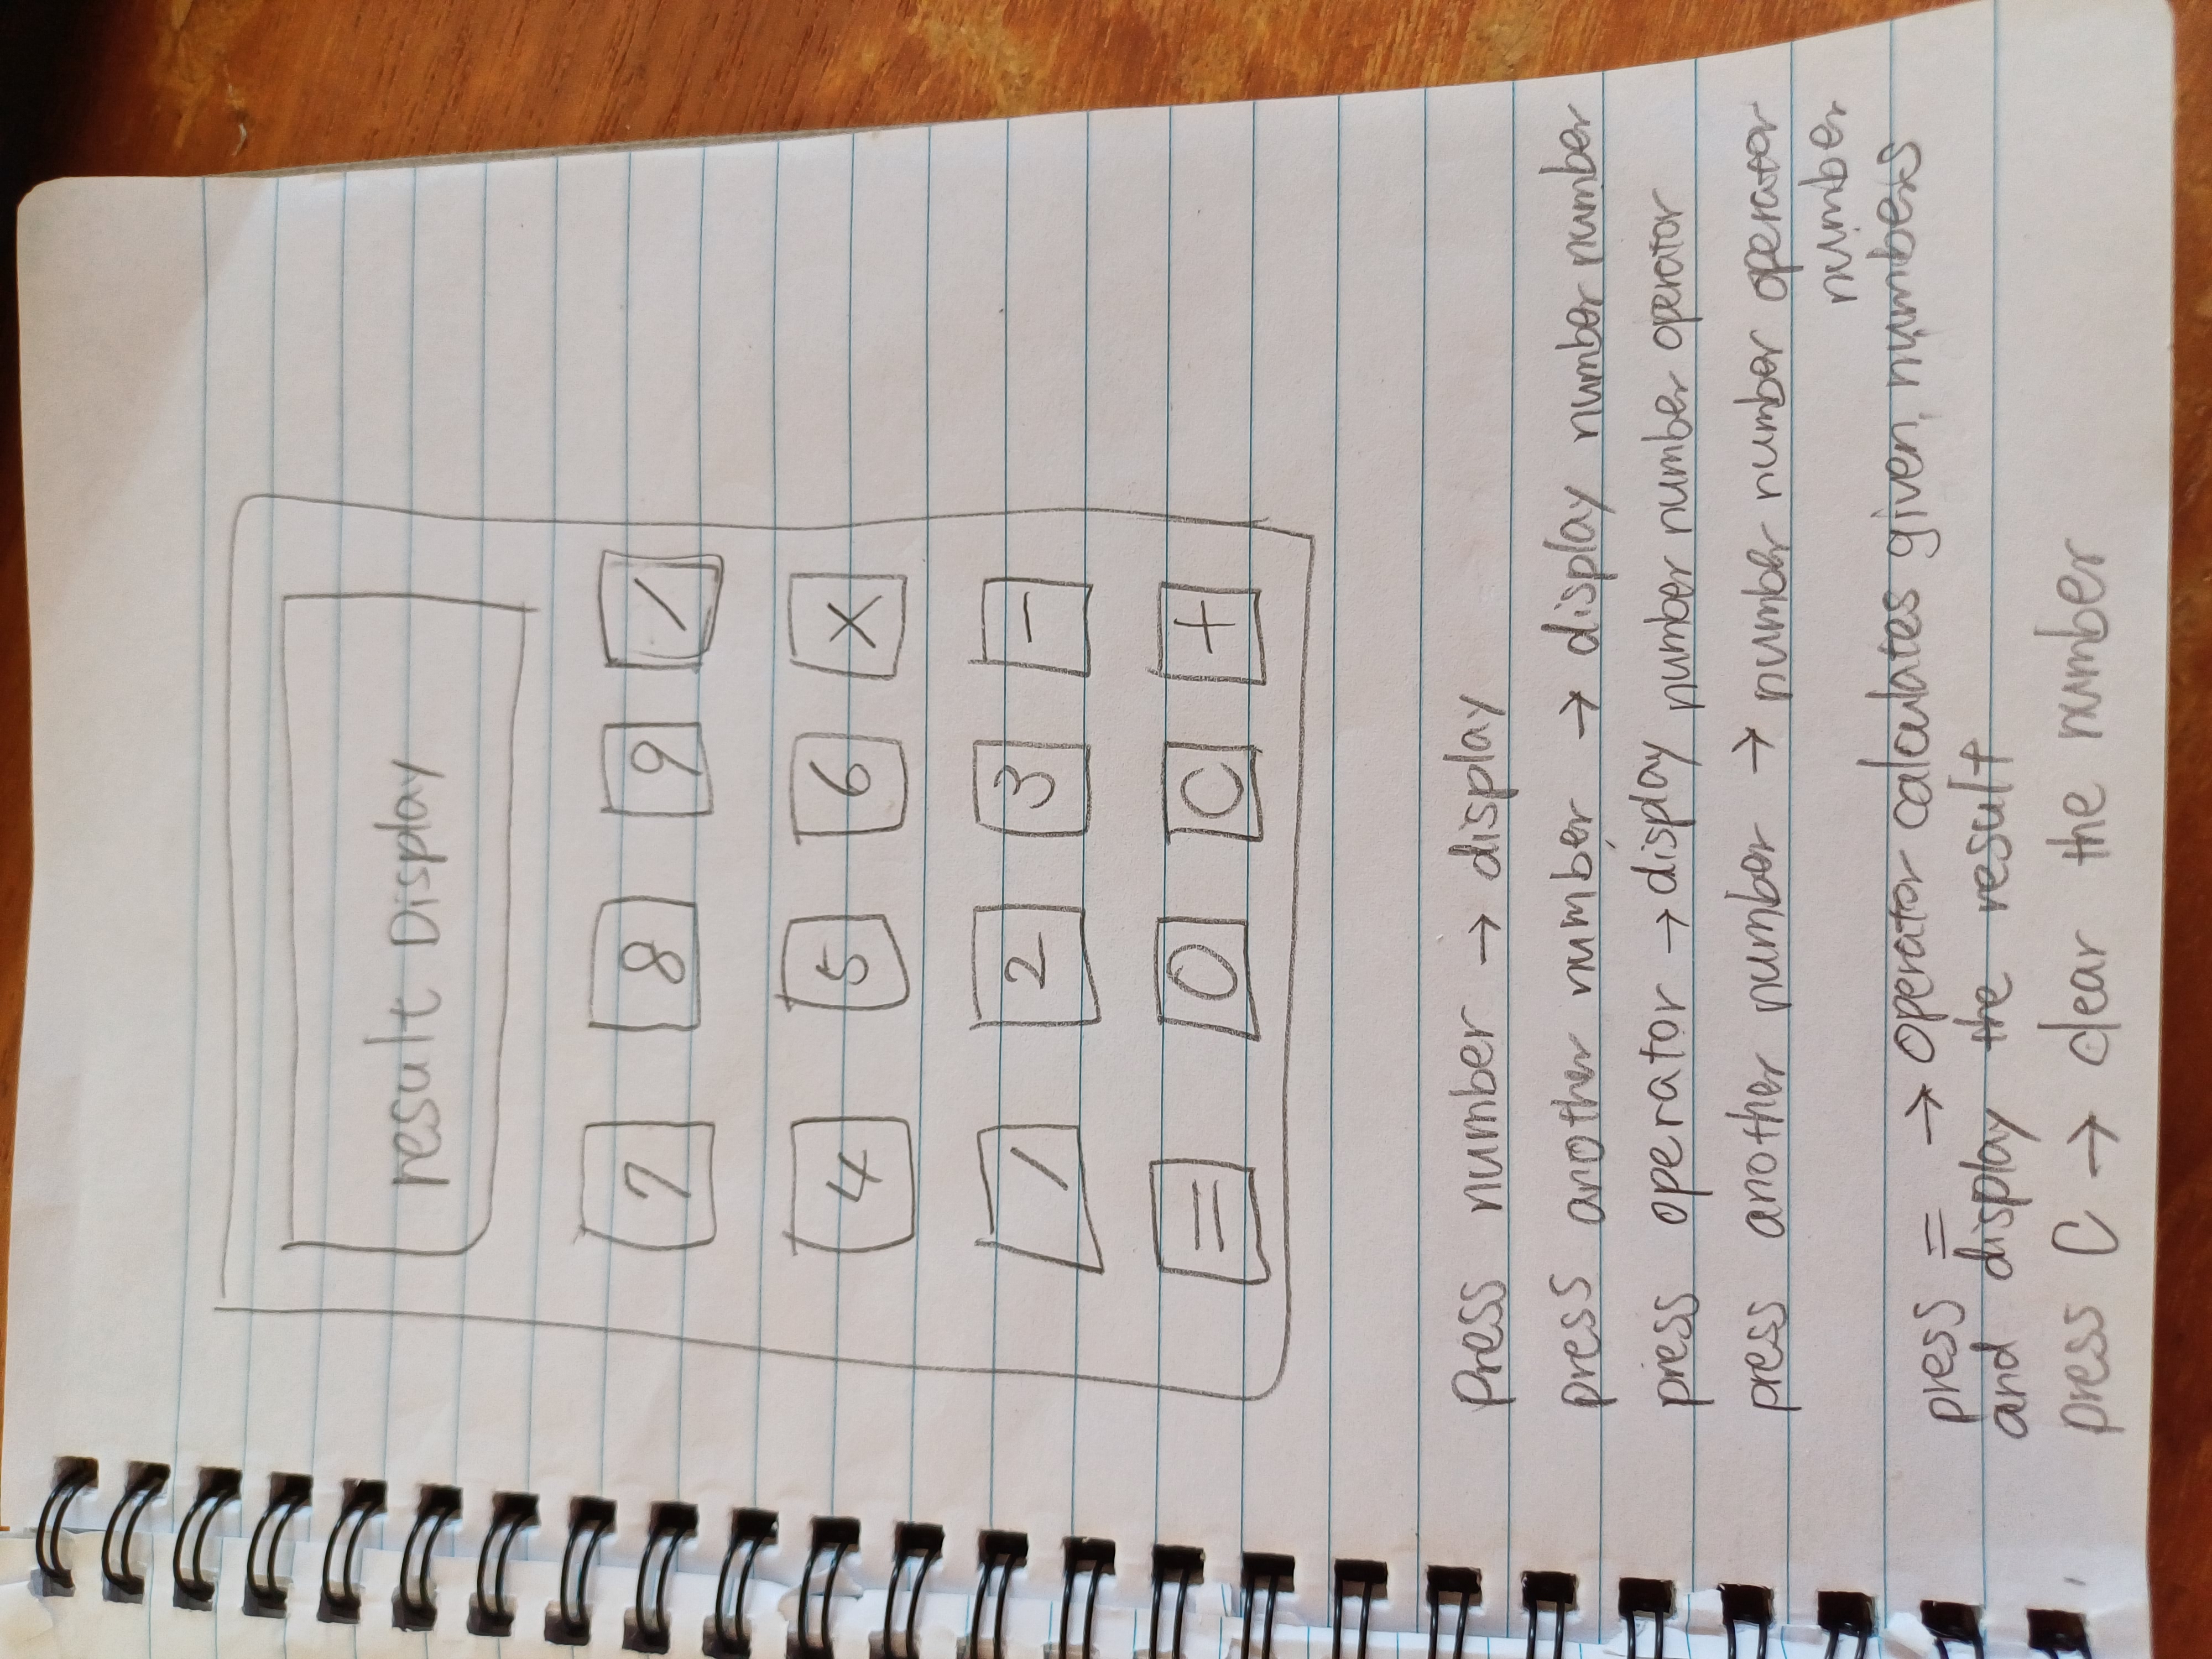 result Display
7 8 9 /
4 5 6 X
1 2 3 -
= 0 C +
Press number → display
press another number → display number number
press operator → display number number operator
press another number → number number operator
number
press = → operator calculates given numbers
and display the result
press C → clear the number